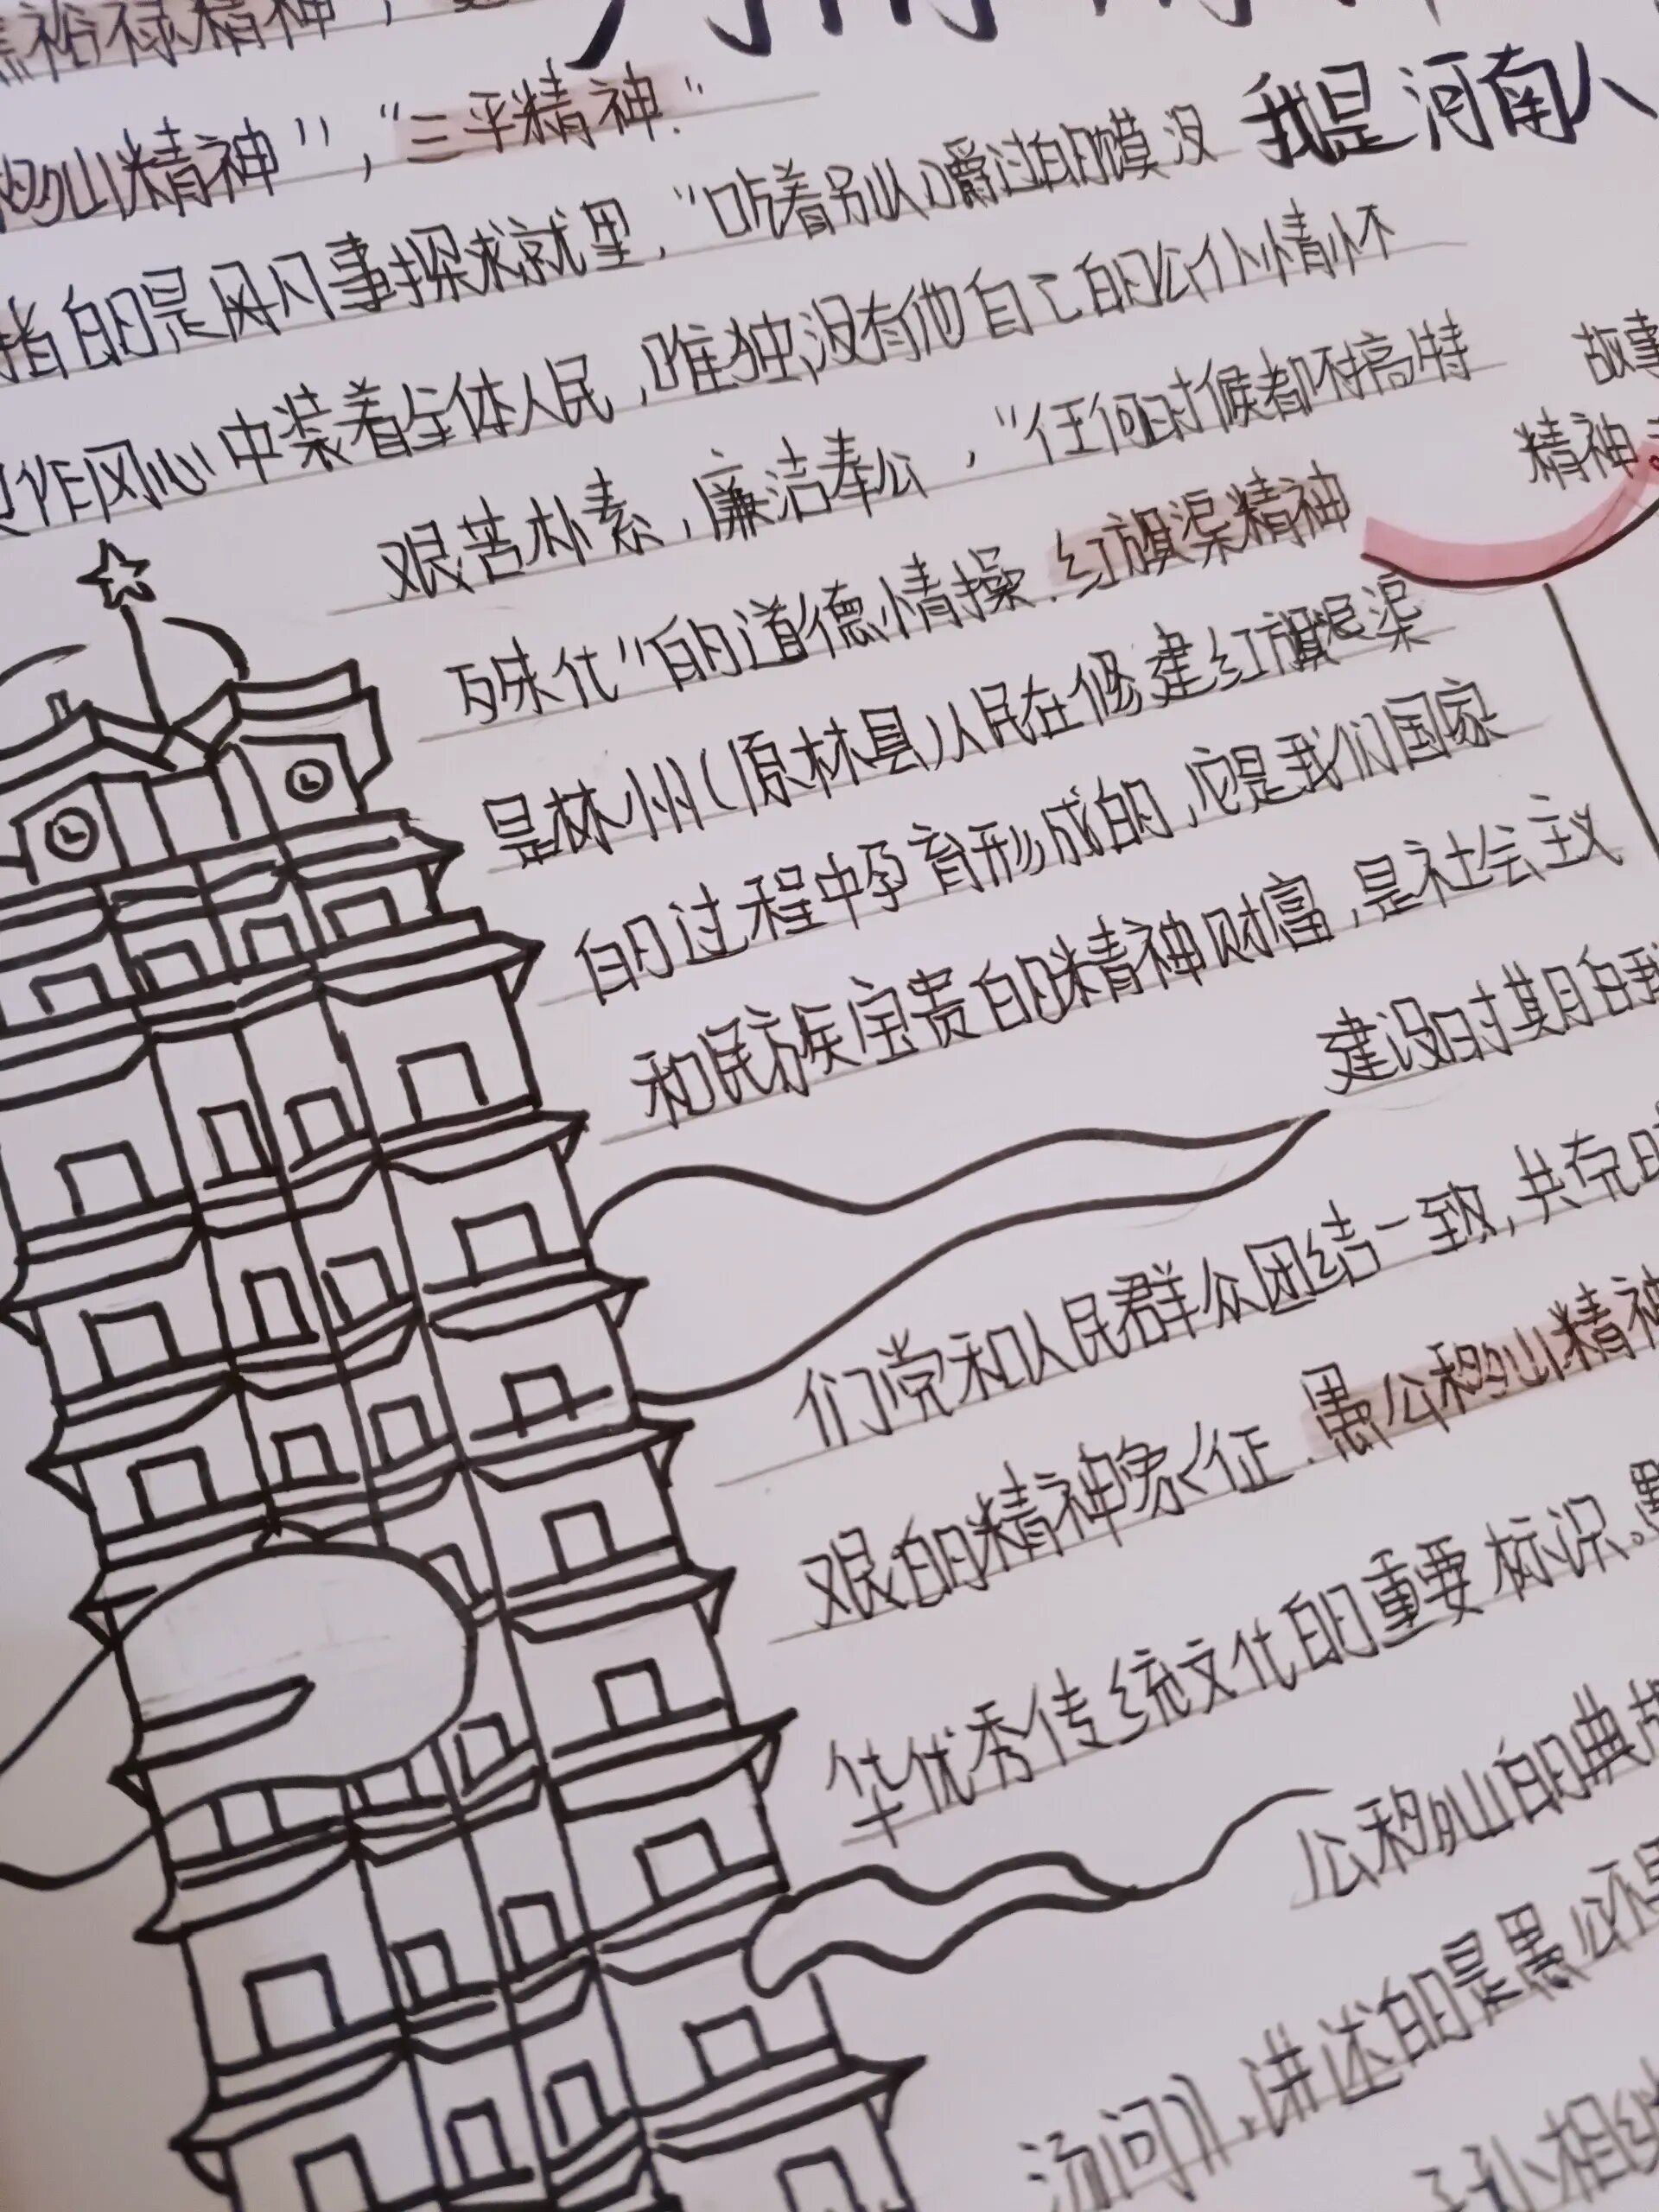 焦裕禄精神",
移山精神","三平精神."
我是河南人
指的是风凡事探求就里,"吃着别人嚼过的馍没
作风心中装着全体人民,唯独没有他自己的公仆情怀
艰苦朴素,廉洁奉公,"任何时候都不搞特
故事
精神
万殊化"的道德情操.红旗渠精神
是林州(原林县)人民在修建红旗渠
的过程中孕育形成的,它是我们国家
和民族宝贵的精神财富,是社会主义
建设时期自我
们党和人民群众团结一致,共克时
艰的精神象征.愚公移山精神
华优秀传统文化的重要标识。愚
公移山的典故
汤问》,讲述的是愚公不畏
子孙相继